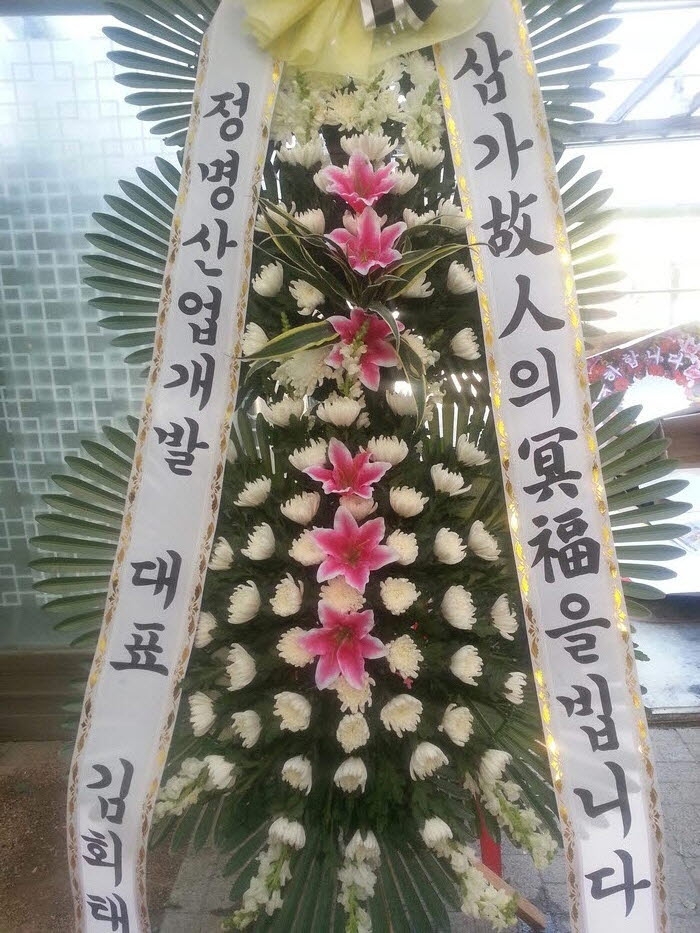 삼가故人의冥福을빕니다
정명산업개발 대표 김회태
하합니다